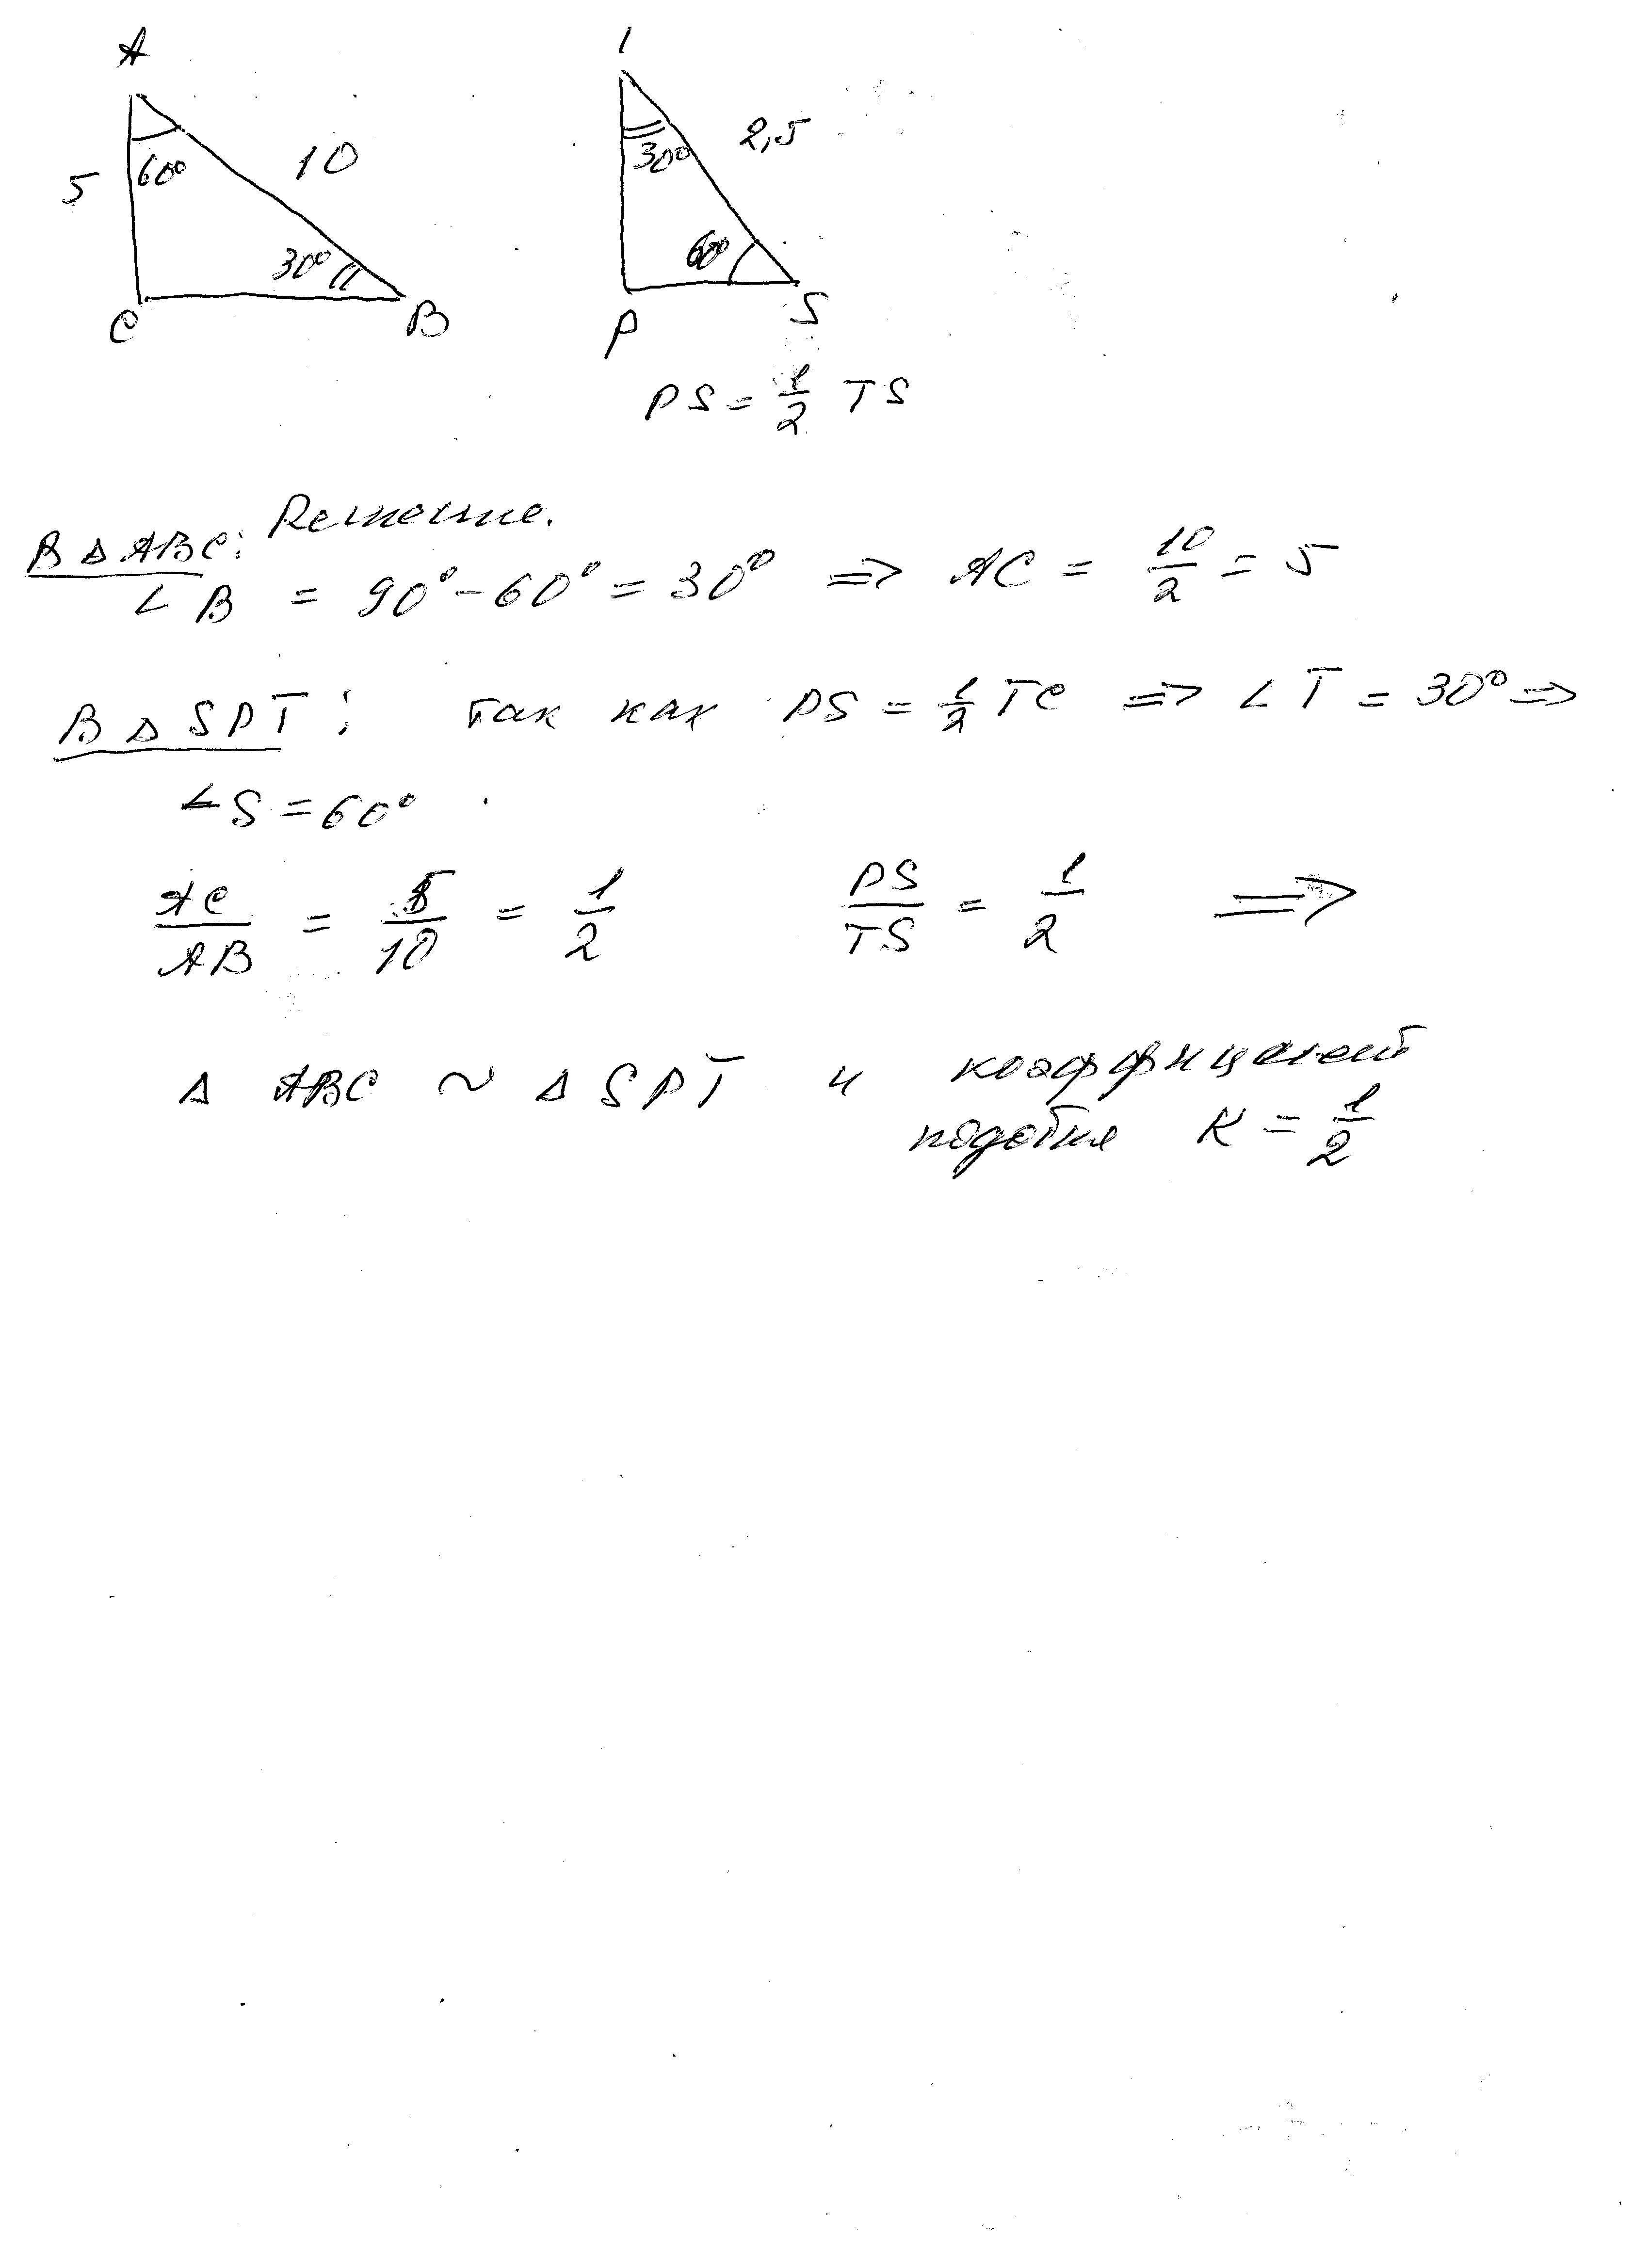 A
5
60°
10
30°
C
B
T
30°
2,5
60°
P
S
PS = 1/2 TS
Решение.
В △ ABC:
∠ B = 90° - 60° = 30° => AC = 10/2 = 5
В △ SPT: так как PS = 1/2 TC => ∠ T = 30° =>
∠ S = 60°
AC/AB = 5/10 = 1/2 PS/TS = 1/2 =>
△ ABC ~ △ SPT и коэффициент
подобия K = 1/2